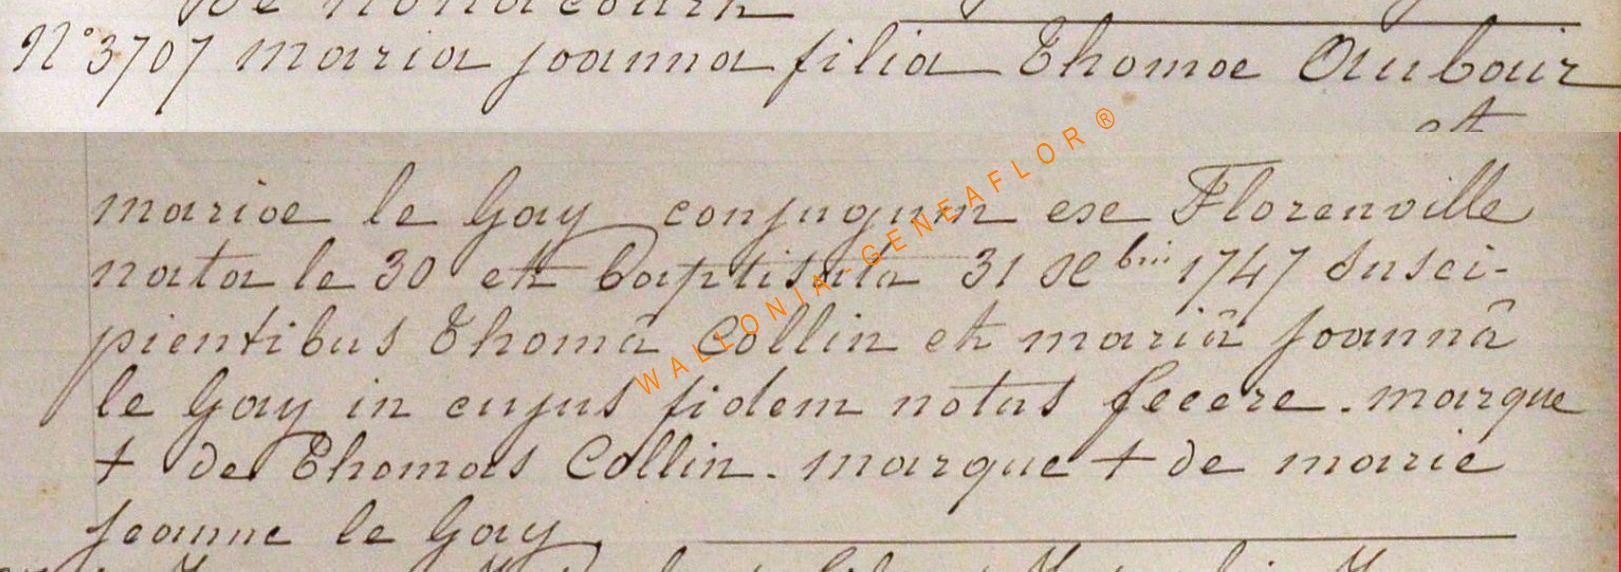 de nonacourt
N° 3707 maria joanna filia Thomoe Aubair
et
marioe le Gay conjugum exe Florenville
nata le 30 et baptisata 31 Xbris 1747 Susci-
pientibus Thomâ Collin et mariâ joannâ
le Gay in cujus fidem notas fecere. marque
+ de Thomas Collin. marque + de marie
jeanne le Gay.
WALLONIA-GENEAFLOR ®